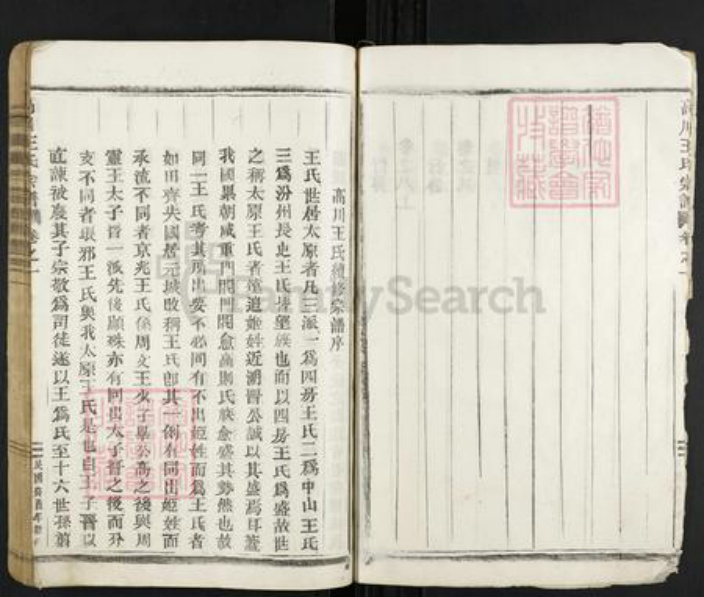 高川王氏續修宗譜序
王氏世居太原者凡三派一爲四房王氏二爲中山王氏
三爲汾州長史王氏皆望族也而以四房王氏爲盛故世
之稱太原王氏者遠追姬姓近溯晉公誠以其盛焉耳
我國累朝咸重門閥門閥愈高則氏族愈盛其勢然也故
同一王氏考其所出要不必同有不出姬姓而爲王氏者
如田齊失國居元城改稱王氏即其一例有同出姬姓而
承流不同者京兆王氏係周文王少子畢公高之後與周
靈王太子晉一派先後顯殊亦有同出太子晉之後而分
支不同者琅邪王氏與我太原王氏是也自王子晉以
直諫被廢其子宗敬爲司徒遂以王爲氏至十六世孫翦
王氏宗譜 卷之一
高川王氏宗譜 卷之一
FamilySearch